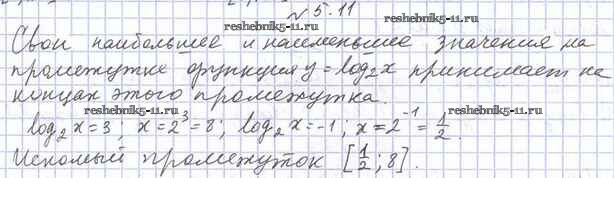 № 5.11
reshebnik5-11.ru
reshebnik5-11.ru
Свои наибольшее и наименьшее значения на
промежутке функция y = log₂x принимает на
концах этого промежутка.
reshebnik5-11.ru
reshebnik5-11.ru
log₂x = 3; x = 2³ = 8; log₂x = -1; x = 2⁻¹ = 1/2.
Искомый промежуток [1/2; 8].